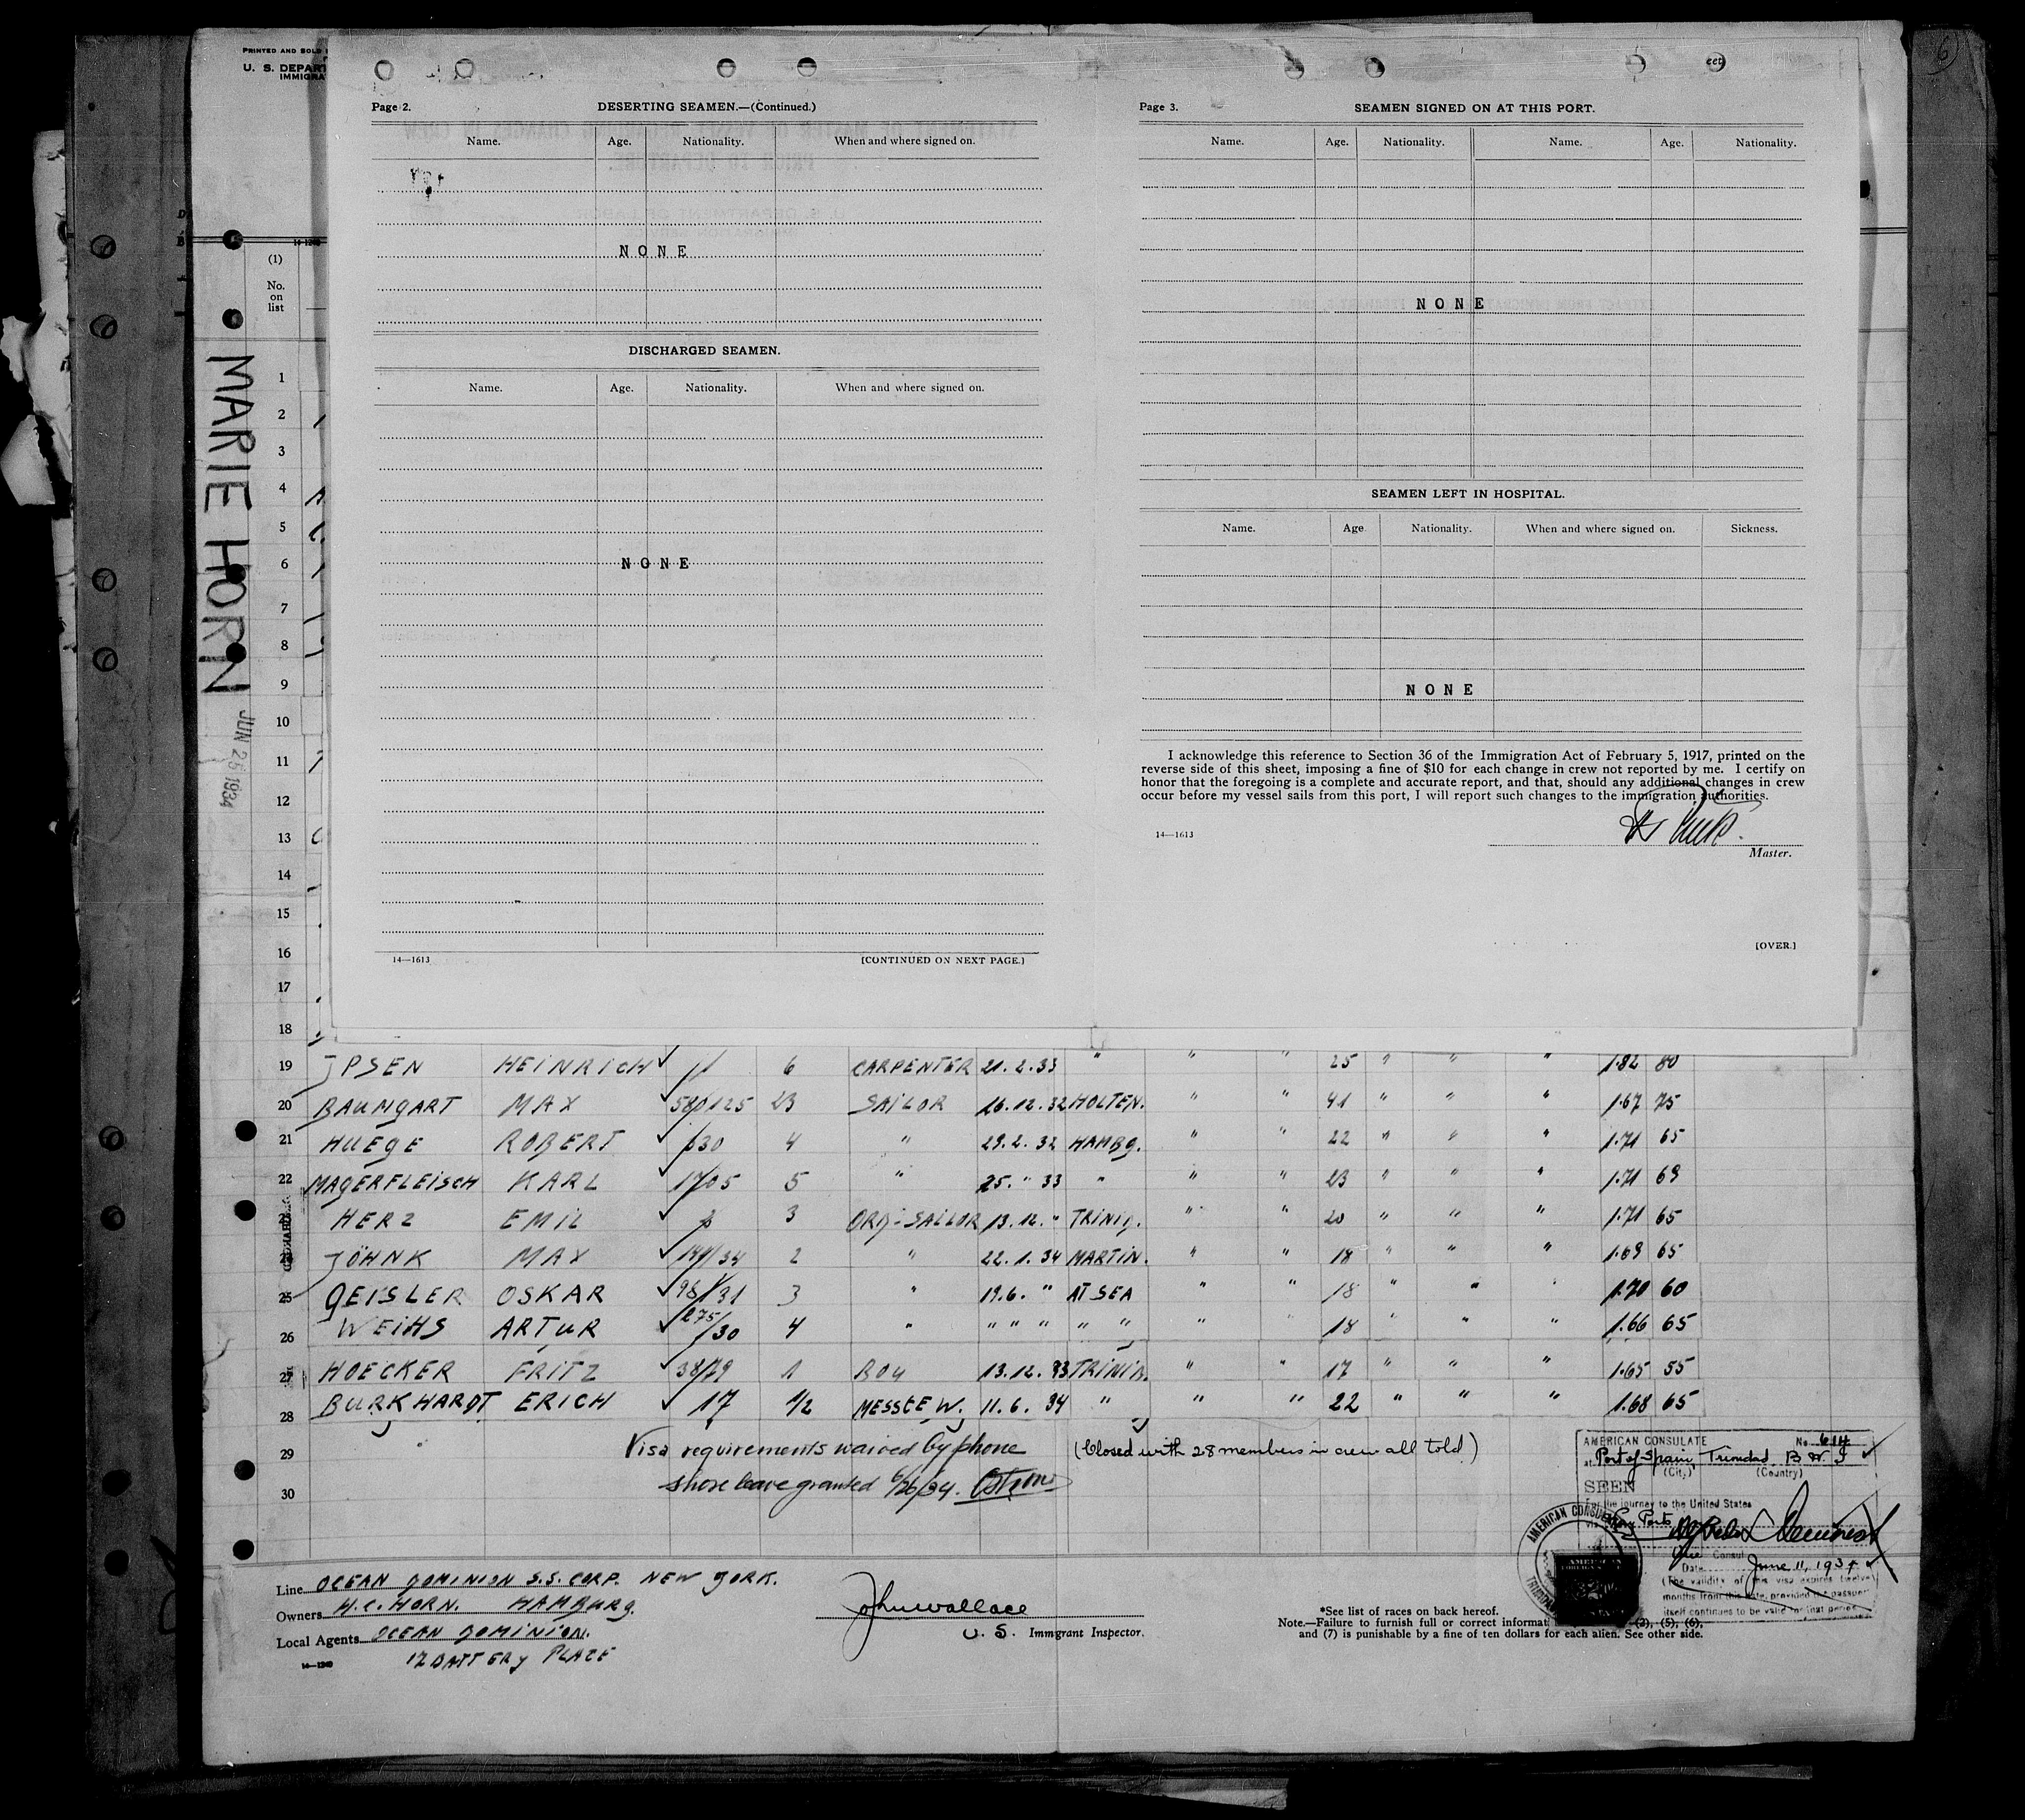 PRINTED AND SOLD
U. S. DEPART
IMMIGRA
14-1240
(1)
No.
on
list
MARIE HORN
JUN 25 1934
Page 2.
DESERTING SEAMEN.—(Continued.)
Name. Age. Nationality. When and where signed on.
NONE
DISCHARGED SEAMEN.
Name. Age. Nationality. When and where signed on.
NONE
14—1613
[CONTINUED ON NEXT PAGE.]
Page 3.
SEAMEN SIGNED ON AT THIS PORT.
Name. Age. Nationality. Name. Age. Nationality.
NONE
SEAMEN LEFT IN HOSPITAL.
Name. Age Nationality. When and where signed on. Sickness.
NONE
I acknowledge this reference to Section 36 of the Immigration Act of February 5, 1917, printed on the
reverse side of this sheet, imposing a fine of $10 for each change in crew not reported by me. I certify on
honor that the foregoing is a complete and accurate report, and that, should any additional changes in crew
occur before my vessel sails from this port, I will report such changes to the immigration authorities.
14—1613
Master.
[OVER.]
1
2
3
4
5
6
7
8
9
10
11
12
13
14
15
16
17
18
19 JPSEN HEINRICH ✓ 6 CARPENTER 21.2.33 " " " 25 " " " 1.82 80
20 BAUMGART MAX ✓ 23 SAILOR 16.12.32 HOLTEN. " " 41 " " " 1.67 75
21 HUEGE ROBERT ✓ 4 " 29.2.32 HAMBG. " " 22 " " " 1.71 65
22 MAGERFLEISCH KARL ✓ 17/05 5 " 25. " 33 " " " 23 " " " 1.71 69
23 HERZ EMIL ✓ 3 ORD-SAILOR 13.12. " TRINID. " " 20 " " " 1.71 65
24 JÖHNK MAX ✓ 141/34 2 " 22.1.34 MARTIN. " " 18 " " " 1.69 65
25 GEISLER OSKAR ✓ 98/31 3 " 19.6. " AT SEA " " 18 " " " 1.70 60
26 WEIHS ARTUR ✓ 275/30 4 " " " " " " " " 18 " " " 1.66 65
27 HOECKER FRITZ ✓ 38/29 1 BOY 13.12.33 TRINID. " " 17 " " " 1.65 55
28 BURKHARDT ERICH ✓ 17 1/2 MESSEW. 11.6.34 " " " 22 " " " 1.68 65
29 Visa requirements waived by phone (Closed with 28 members in crew all told)
30 shore leave granted 6/26/34.
AMERICAN CONSULATE No. 614
at Port of Spain, Trinidad B W I
(City) (Country)
SEEN
For the journey to the United States
Vice Consul
Date June 11, 1934
(The validity of this visa expires twelve
months from this date, provided the passport
itself continues to be valid for that period.
AMERICAN CONSULATE
Line OCEAN DOMINION S.S. CORP. NEW YORK.
Owners H.C. HORN. HAMBURG.
Local Agents OCEAN DOMINION.
17 BATTERY PLACE
14—1240
John Wallace
U. S. Immigrant Inspector.
*See list of races on back hereof.
Note.—Failure to furnish full or correct informat (3), (5), (6),
and (7) is punishable by a fine of ten dollars for each alien. See other side.